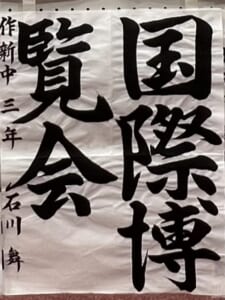 国際博
覧会
作新中 三年 石川 舞